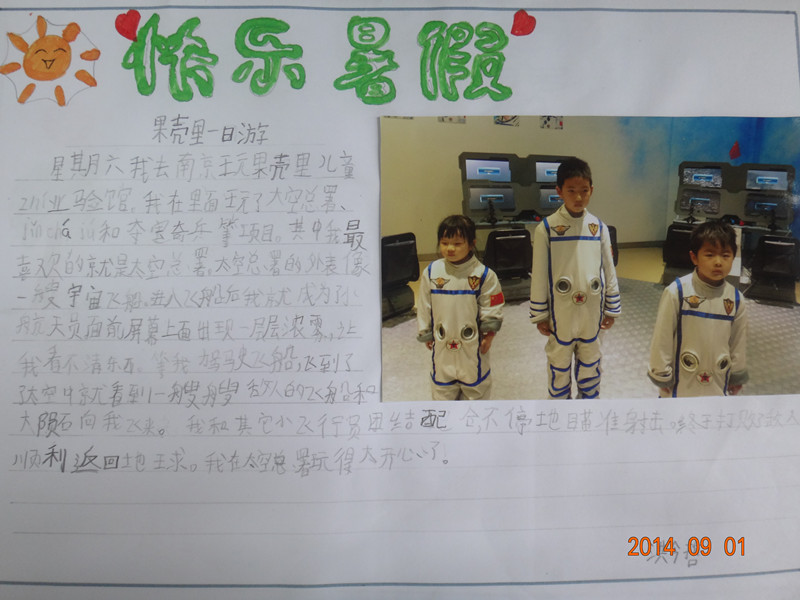 快乐暑假
果壳里一日游
星期六我去南京玩果壳里儿童
zhi业马金馆,我在里面玩了太空总署、
和夺宝奇兵等项目。其中我最
喜欢的就是太空总署,太空总署的外表像
一艘宇宙飞船,进入飞船后我就成为了小
航天员面前屏幕上面出现一层浓雾,让
我看不清东西。等我驾驶飞船,飞到了
太空中就看到一艘艘敌人的飞船和
大陨石向我飞来。我和其它小飞行员团结配合,不停地瞄准射击,终于打败敌人
顺利返回地王求。我在太空总署玩得太开心了。
2014 09 01